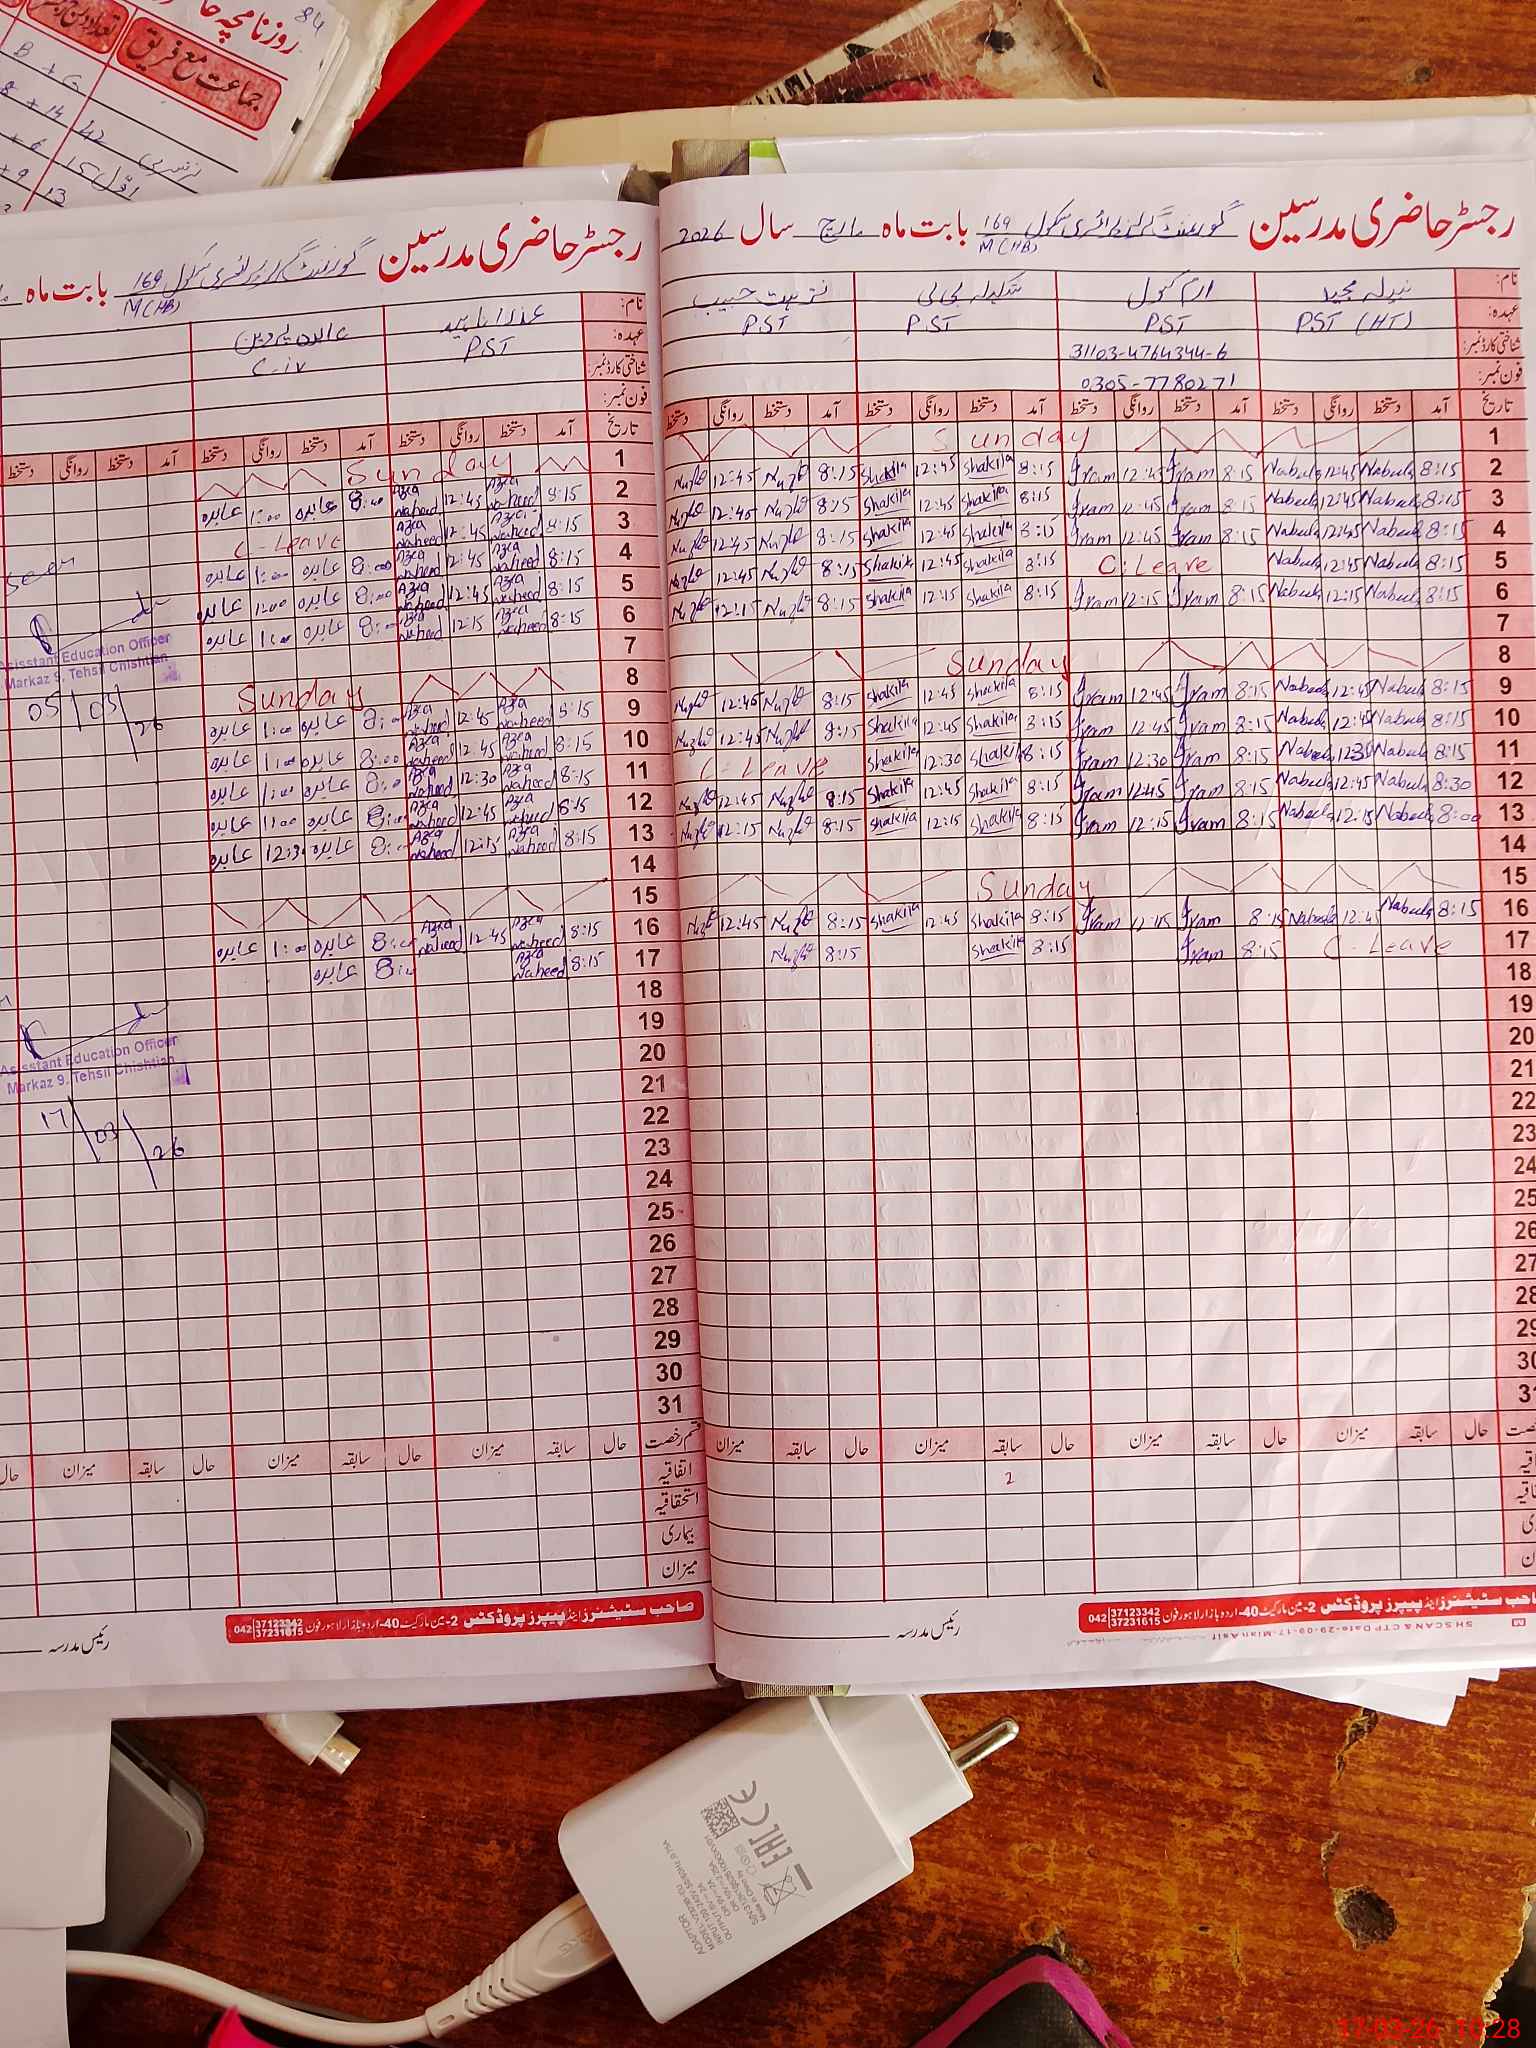 84
روزنامچہ
جماعت مع فریق
B + G
8 + 14 42 نرسری
+ 6 15 اول
+ 9 13
رجسٹر حاضری مدرسین گورنمنٹ گرلز پرائمری سکول 169 M(HB) بابت ماہ مارچ سال 2026
نام: نبیلہ مجید ارم کنول شکیلہ بی بی نزہت حبیب
عہدہ: PST (HT) PST PST PST
شناختی کارڈ نمبر: 31103-4764344-6
فون نمبر: 0305-7780271
تاریخ آمد دستخط روانگی دستخط آمد دستخط روانگی دستخط آمد دستخط روانگی دستخط آمد دستخط روانگی دستخط
1 Sunday
2 8:15 Nabeela 12:45 Nabeela 8:15 Iram 12:45 Iram 8:15 Shakila 12:45 Shakila 8:15 Nuzhat 12:45 Nuzhat
3 8:15 Nabeela 12:45 Nabeela 8:15 Iram 12:45 Iram 8:15 Shakila 12:45 Shakila 8:15 Nuzhat 12:45 Nuzhat
4 8:15 Nabeela 12:45 Nabeela 8:15 Iram 12:45 Iram 8:15 Shakila 12:45 Shakila 8:15 Nuzhat 12:45 Nuzhat
5 8:15 Nabeela 12:45 Nabeela C. Leave 8:15 Shakila 12:45 Shakila 8:15 Nuzhat 12:45 Nuzhat
6 8:15 Nabeela 12:15 Nabeela 8:15 Iram 12:15 Iram 8:15 Shakila 12:15 Shakila 8:15 Nuzhat 12:15 Nuzhat
7
8 Sunday
9 8:15 Nabeela 12:45 Nabeela 8:15 Iram 12:45 Iram 8:15 Shakila 12:45 Shakila 8:15 Nuzhat 12:45 Nuzhat
10 8:15 Nabeela 12:45 Nabeela 8:15 Iram 12:45 Iram 8:15 Shakila 12:45 Shakila 8:15 Nuzhat 12:45 Nuzhat
11 8:15 Nabeela 12:30 Nabeela 8:15 Iram 12:30 Iram 8:15 Shakila 12:30 Shakila C-Leave
12 8:30 Nabeela 12:45 Nabeela 8:15 Iram 12:45 Iram 8:15 Shakila 12:45 Shakila 8:15 Nuzhat 12:45 Nuzhat
13 8:00 Nabeela 12:15 Nabeela 8:15 Iram 12:15 Iram 8:15 Shakila 12:15 Shakila 8:15 Nuzhat 12:15 Nuzhat
14
15 Sunday
16 8:15 Nabeela 12:45 Nabeela 8:15 Iram 12:45 Iram 8:15 Shakila 12:45 Shakila 8:15 Nuzhat 12:45 Nuzhat
17 C-Leave 8:15 Iram 8:15 Shakila 8:15 Nuzhat
18
19
20
21
22
23
24
25
26
27
28
29
30
31
حال سابقہ میزان حال سابقہ میزان حال سابقہ میزان حال سابقہ میزان
2
صاحب سٹیشنرز اینڈ پیپرز پروڈکٹس 2-مین مارکیٹ 40-اردو بازار لاہور فون 042 37123342 37231615
SH SCAN & CTP Date-29-09-17-Mian Asif
رئیس مدرسہ
رجسٹر حاضری مدرسین گورنمنٹ گرلز پرائمری سکول 169 M(HB) بابت ماہ
نام: عذرا ناہید عابدہ پروین
عہدہ: PST C-iv
شناختی کارڈ نمبر:
فون نمبر:
تاریخ آمد دستخط روانگی دستخط آمد دستخط روانگی دستخط آمد دستخط روانگی دستخط
1 Sunday
2 8:15 Azra Naheed 12:45 Azra Naheed 8:00 عابدہ 1:00 عابدہ
3 8:15 Azra Naheed 12:45 Azra Naheed C-Leave
4 8:15 Azra Naheed 12:45 Azra Naheed 8:00 عابدہ 1:00 عابدہ
5 8:15 Azra Naheed 12:45 Azra Naheed 8:00 عابدہ 1:00 عابدہ
6 8:15 Azra Naheed 12:15 Azra Naheed 8:00 عابدہ 1:00 عابدہ
7
8 Sunday
9 8:15 Azra Naheed 12:45 Azra Naheed 8:00 عابدہ 1:00 عابدہ
10 8:15 Azra Naheed 12:45 Azra Naheed 8:00 عابدہ 1:00 عابدہ
11 8:15 Azra Naheed 12:30 Azra Naheed 8:00 عابدہ 1:00 عابدہ
12 8:15 Azra Naheed 12:45 Azra Naheed 8:00 عابدہ 1:00 عابدہ
13 8:15 Azra Naheed 12:15 Azra Naheed 8:00 عابدہ 12:30 عابدہ
14
15
16 8:15 Azra Naheed 12:45 Azra Naheed 8:00 عابدہ 1:00 عابدہ
17 8:15 Azra Naheed 8:00 عابدہ
18
19
20
21
22
23
24
25
26
27
28
29
30
31
Seen
Assistant Education Officer
Markaz 9. Tehsil Chishtian
05/03/26
Assistant Education Officer
Markaz 9. Tehsil Chishtian
17/03/26
قسم رخصت حال سابقہ میزان حال سابقہ میزان حال سابقہ میزان حال
اتفاقیہ
استحقاقیہ
بیماری
میزان
صاحب سٹیشنرز اینڈ پیپرز پروڈکٹس 2-مین مارکیٹ 40-اردو بازار لاہور فون 042 37123342 37231615
رئیس مدرسہ
CE
EAC
ADAPTOR
17-03-26 10:28